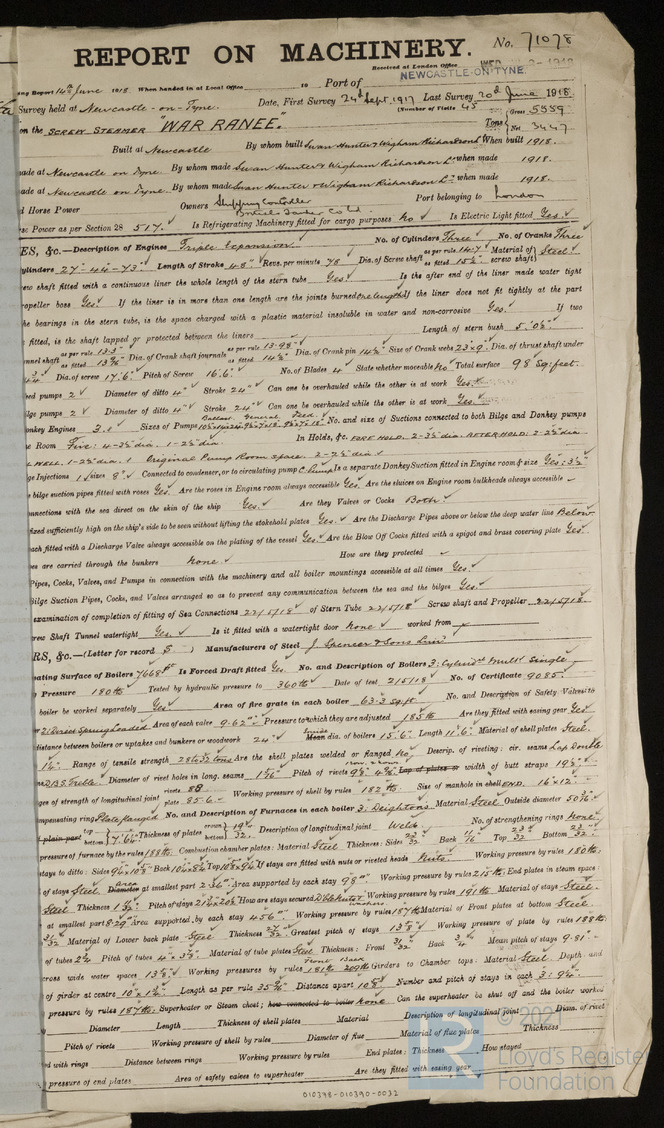 REPORT ON MACHINERY. No. 71078
Received at London Office WED.
Report 14th June 1918 When handed in at Local Office to Port of NEWCASTLE-ON-TYNE.
Survey held at Newcastle-on-Tyne. Date, First Survey 24th Sept. 1917 Last Survey 20th June 1918
(Number of Visits 45
on the SCREW STEAMER "WAR RANEE." Tons { Gross 5559 Net 3447
Built at Newcastle By whom built Swan Hunter & Wigham Richardson Ld When built 1918.
made at Newcastle on Tyne By whom made Swan Hunter & Wigham Richardson Ld when made 1918.
made at Newcastle on Tyne. By whom made Swan Hunter & Wigham Richardson Ld when made 1918.
Horse Power Owners Shipping Controller Port belonging to London
Power as per Section 28 517. Is Refrigerating Machinery fitted for cargo purposes No Is Electric Light fitted Yes.
ES, &c.—Description of Engines Triple Expansion No. of Cylinders Three No. of Cranks Three
ylinders 27"-44"-73" Length of Stroke 48" Revs. per minute 78 Dia. of Screw shaft as per rule 14.7 as fitted 15½" Material of screw shaft Steel
ew shaft fitted with a continuous liner the whole length of the stern tube Yes. Is the after end of the liner made water tight
ropeller boss Yes. If the liner is in more than one length are the joints burned one length If the liner does not fit tightly at the part
he bearings in the stern tube, is the space charged with a plastic material insoluble in water and non-corrosive Yes. If two
fitted, is the shaft lapped or protected between the liners Length of stern bush 5'.0½"
nnel shaft as per rule as fitted Dia. of Crank shaft journals as per rule 13.98" as fitted 14½" Dia. of Crank pin 14½" Size of Crank webs 23"x9" Dia. of thrust shaft under
Dia. of screw 17'.6" Pitch of Screw 16'.6" No. of Blades 4 State whether moveable No Total surface 98 Sq: feet.
eed pumps 2 Diameter of ditto 4" Stroke 24" Can one be overhauled while the other is at work Yes.
ilge pumps 2 Diameter of ditto 4" Stroke 24" Can one be overhauled while the other is at work Yes.
onkey Engines 3. Sizes of Pumps Ballast General Feed No. and size of Suctions connected to both Bilge and Donkey pumps
e Room Five: 4-3½" dia. 1-2½" dia In Holds, &c. FORE HOLD. 2-3½" dia. AFTER HOLD: 2-2½" dia
WELL. 1-2½" dia. 1 Original Pump Room space. 2-2½" dia
ge Injections 1 sizes 8" Connected to condenser, or to circulating pump C. Pump Is a separate Donkey Suction fitted in Engine room & size Yes: 3½"
e bilge suction pipes fitted with roses Yes. Are the roses in Engine room always accessible Yes. Are the sluices on Engine room bulkheads always accessible
nnections with the sea direct on the skin of the ship Yes. Are they Valves or Cocks Both
fixed sufficiently high on the ship's side to be seen without lifting the stokehold plates Yes. Are the Discharge Pipes above or below the deep water line Below
ach fitted with a Discharge Valve always accessible on the plating of the vessel Yes. Are the Blow Off Cocks fitted with a spigot and brass covering plate Yes.
es are carried through the bunkers None. How are they protected
Pipes, Cocks, Valves, and Pumps in connection with the machinery and all boiler mountings accessible at all times Yes.
Bilge Suction Pipes, Cocks, and Valves arranged so as to prevent any communication between the sea and the bilges Yes.
examination of completion of fitting of Sea Connections 22/5/18 of Stern Tube 22/5/18 Screw shaft and Propeller 22/5/18.
rew Shaft Tunnel watertight Yes. Is it fitted with a watertight door None worked from
RS, &c.—(Letter for record S) Manufacturers of Steel J. Spencer & Sons Lim
eating Surface of Boilers 7668 Is Forced Draft fitted Yes No. and Description of Boilers 3: Cylind'l mult Single
Pressure 180 lb Tested by hydraulic pressure to 360 lb Date of test 2/5/18 No. of Certificate 9085.
boiler be worked separately Yes Area of fire grate in each boiler 63.3 sq.ft No. and Description of Safety Valves to
Spring Loaded Area of each valve 9.62" Pressure to which they are adjusted 185 lb Are they fitted with easing gear Yes
distance between boilers or uptakes and bunkers or woodwork 24" Inside Mean dia. of boilers 15'.6" Length 11'.6" Material of shell plates Steel.
Range of tensile strength 28 to 32 tons Are the shell plates welded or flanged No Descrip. of riveting: cir. seams Lap Double
D.B.S. Treble. Diameter of rivet holes in long. seams Pitch of rivets Lap of plates or width of butt straps 19½"
ges of strength of longitudinal joint rivets 88 plate 85.6 Working pressure of shell by rules 182 lb Size of manhole in shell END. 16"x12"
mpensating ring Plate flanged No. and Description of Furnaces in each boiler 3: Deightons Material Steel Outside diameter
plain part top bottom Thickness of plates crown bottom Description of longitudinal joint Weld No. of strengthening rings None
pressure of furnace by the rules 188 lb Combustion chamber plates: Material Steel Thickness: Sides 23/32 Back 11/16 Top 23/32 Bottom
stays to ditto: Sides Back Top If stays are fitted with nuts or riveted heads Nuts. Working pressure by rules 180 lb:
of stays Steel Area Diameter at smallest part 2.36" Area supported by each stay 98" Working pressure by rules 215 lb: End plates in steam space:
Steel Thickness Pitch of stays How are stays secured D. Nuts & washers Working pressure by rules 191 lb Material of stays Steel.
at smallest part 8.29" Area supported by each stay 456" Working pressure by rules 187 lb Material of Front plates at bottom Steel.
31/32 Material of Lower back plate Steel Thickness 27/32 Greatest pitch of stays 13⅝" Working pressure of plate by rules 188 lb:
of tubes Pitch of tubes Material of tube plates Steel Thickness: Front 31/32 Back Mean pitch of stays 9.81"
cross wide water spaces 13⅝" Working pressures by rules Front 181 lb Back 209 lb Girders to Chamber tops: Material Steel. Depth and
of girder at centre 10"x1¾" Length as per rule Distance apart Number and pitch of stays in each 3: 9¼"
pressure by rules 187 lb. Superheater or Steam chest; how connected to boiler None Can the superheater be shut off and the boiler worked
Diameter Length Thickness of shell plates Material Description of longitudinal joint Diam. of rivet
Pitch of rivets Working pressure of shell by rules Diameter of flue Material of flue plates Thickness
ed with rings Distance between rings Working pressure by rules End plates: Thickness How stayed
pressure of end plates Area of safety valves to superheater Are they fitted with easing gear
010398-010390-0032
© 2021
LR
Lloyd's Register
Foundation